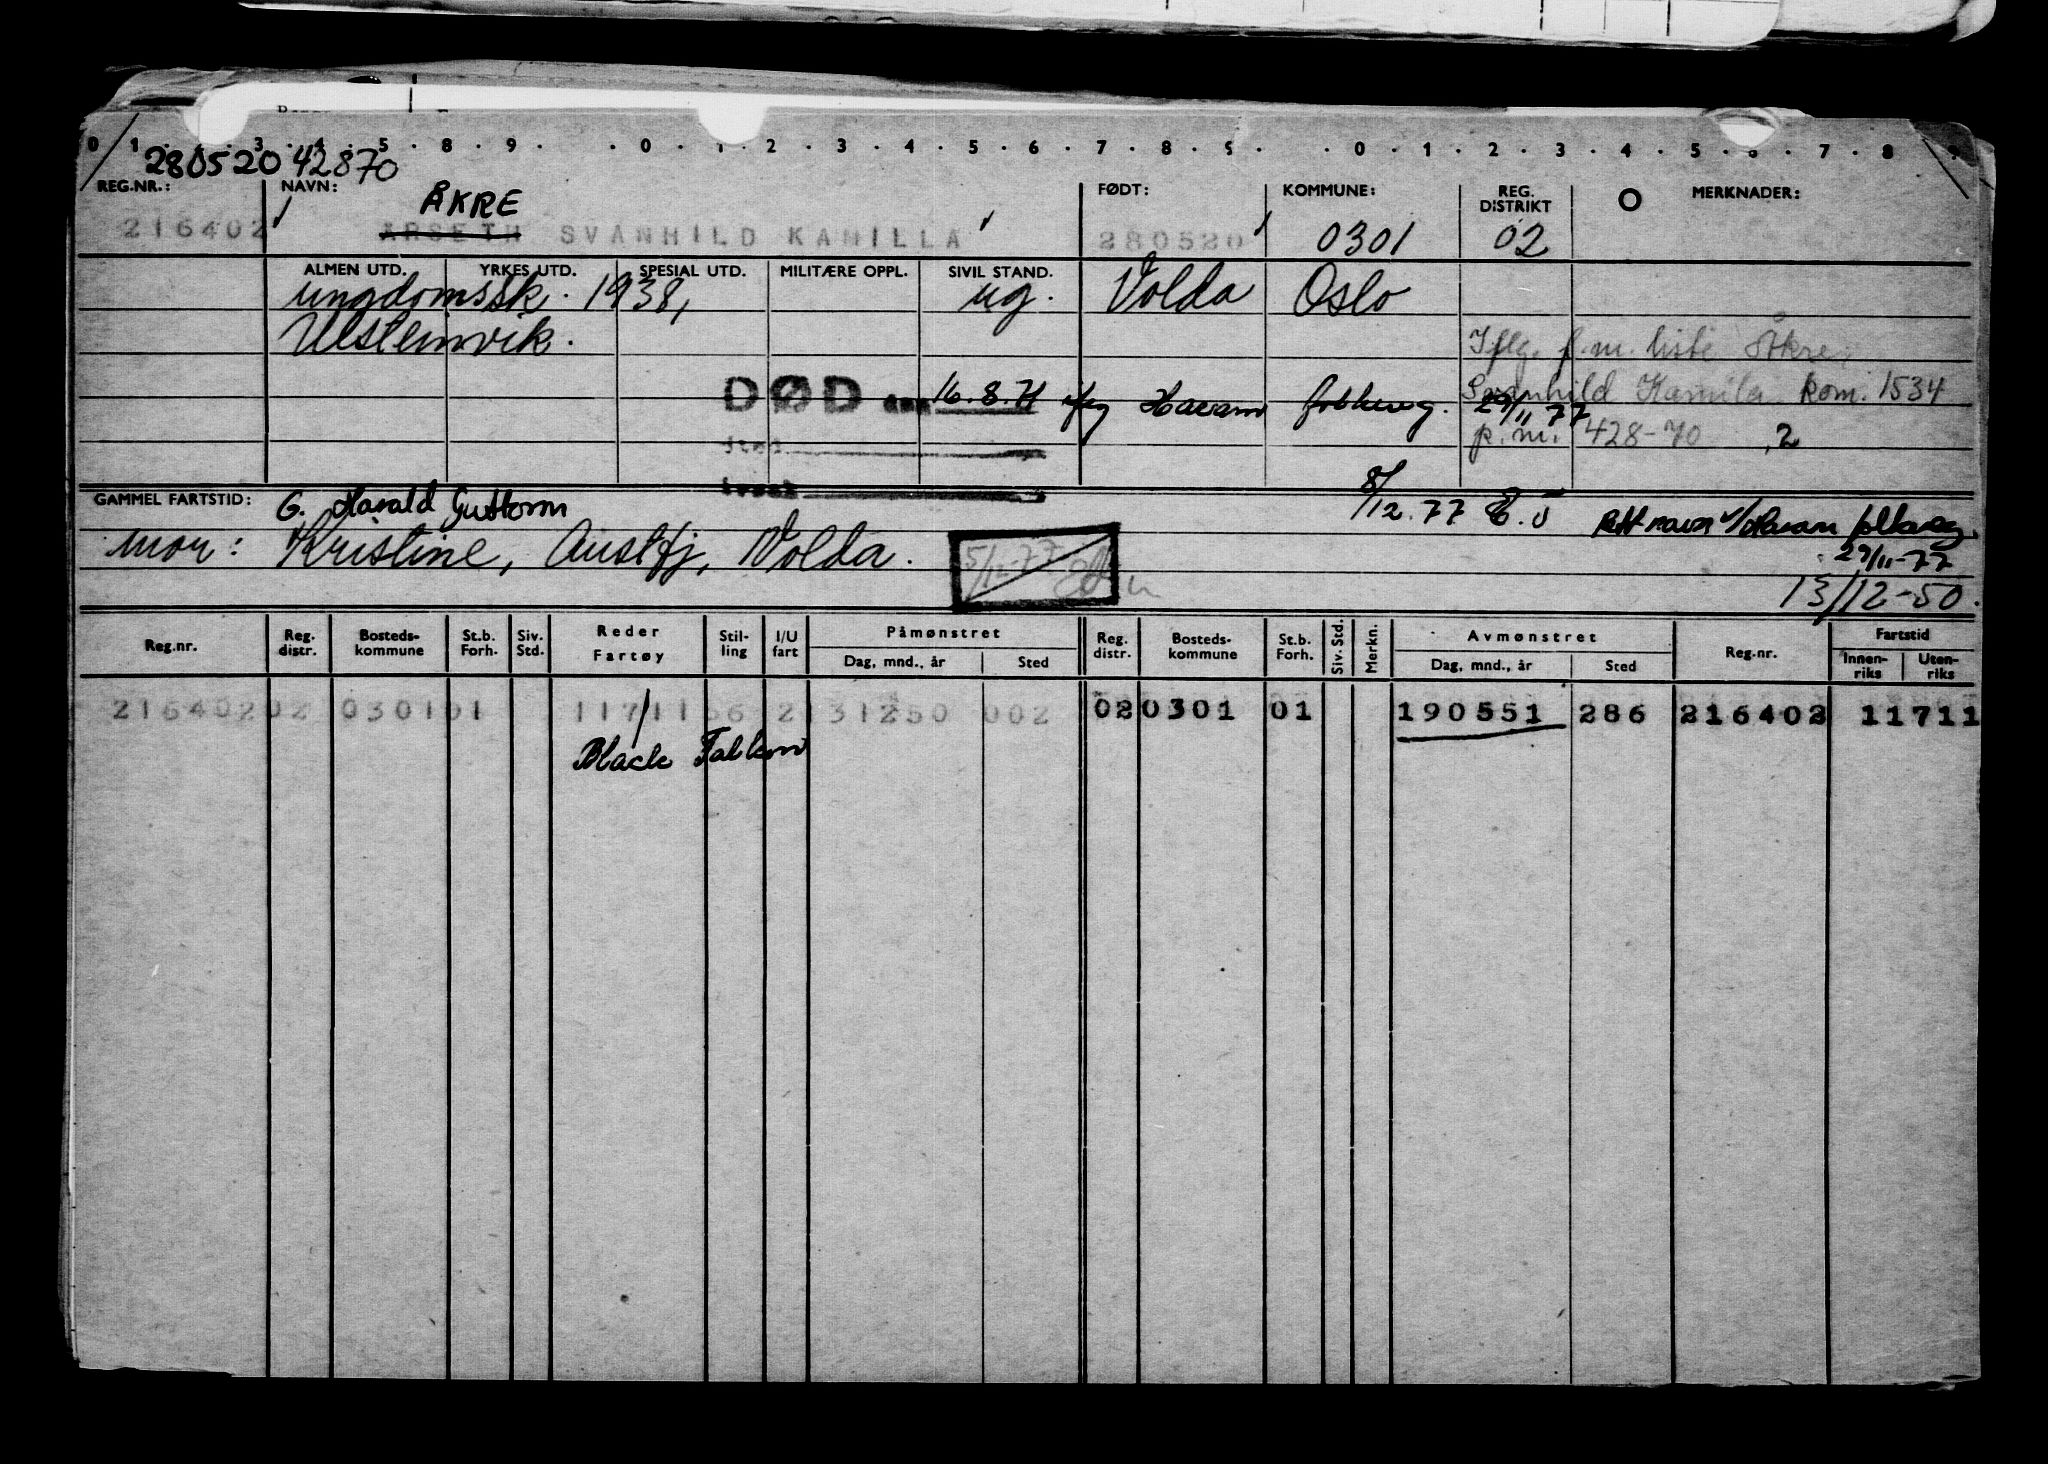 0 1 . . 3 . 4 . 5 . 8 . 9 . . 0 . 1 . 2 . 3 . 4 . 5 . 6 . 7 . 8 . 9 . . 0 . 1 . 2 . 3 . 4 . 5 . 6 . 7 . 8
280520 42870
REG.NR.: NAVN: FØDT: KOMMUNE: REG. DISTRIKT MERKNADER:
ÅKRE
216402 ARSETH SVANHILD KAMILLA 280520 0301 02
ALMEN UTD. YRKES UTD. SPESIAL UTD. MILITÆRE OPPL. SIVIL STAND.
ungdomssk. 1938, ug. Volda Oslo
Ulsteinvik. Iflg. f.m. liste Åkre,
DØD den 16.8.71 iflg Haram folkereg. 29/11 77
Svanhild Kamila kom. 1534
p.m. 428-70 , 2
sted
årsak
GAMMEL FARTSTID: G. Harald Guttorm 8/12.77
Rett navn v/Haram folkereg.
mor: Kristine, Austfj, Volda. 5/12-77 29/11-77
13/12-50.
Reg.nr. Reg. distr. Bosteds- kommune St.b. Forh. Siv. Std. Reder Fartøy Stil- ling I/U fart Påmønstret Dag, mnd., år Sted Reg. distr. Bosteds- kommune St.b. Forh. Siv. Std. Merkn. Avmønstret Dag, mnd., år Sted Reg.nr. Fartstid Innen- riks Uten- riks
216402 02 0301 01 11711 56 2 131250 002 02 0301 01 190551 286 216402 11711
Black Falkon